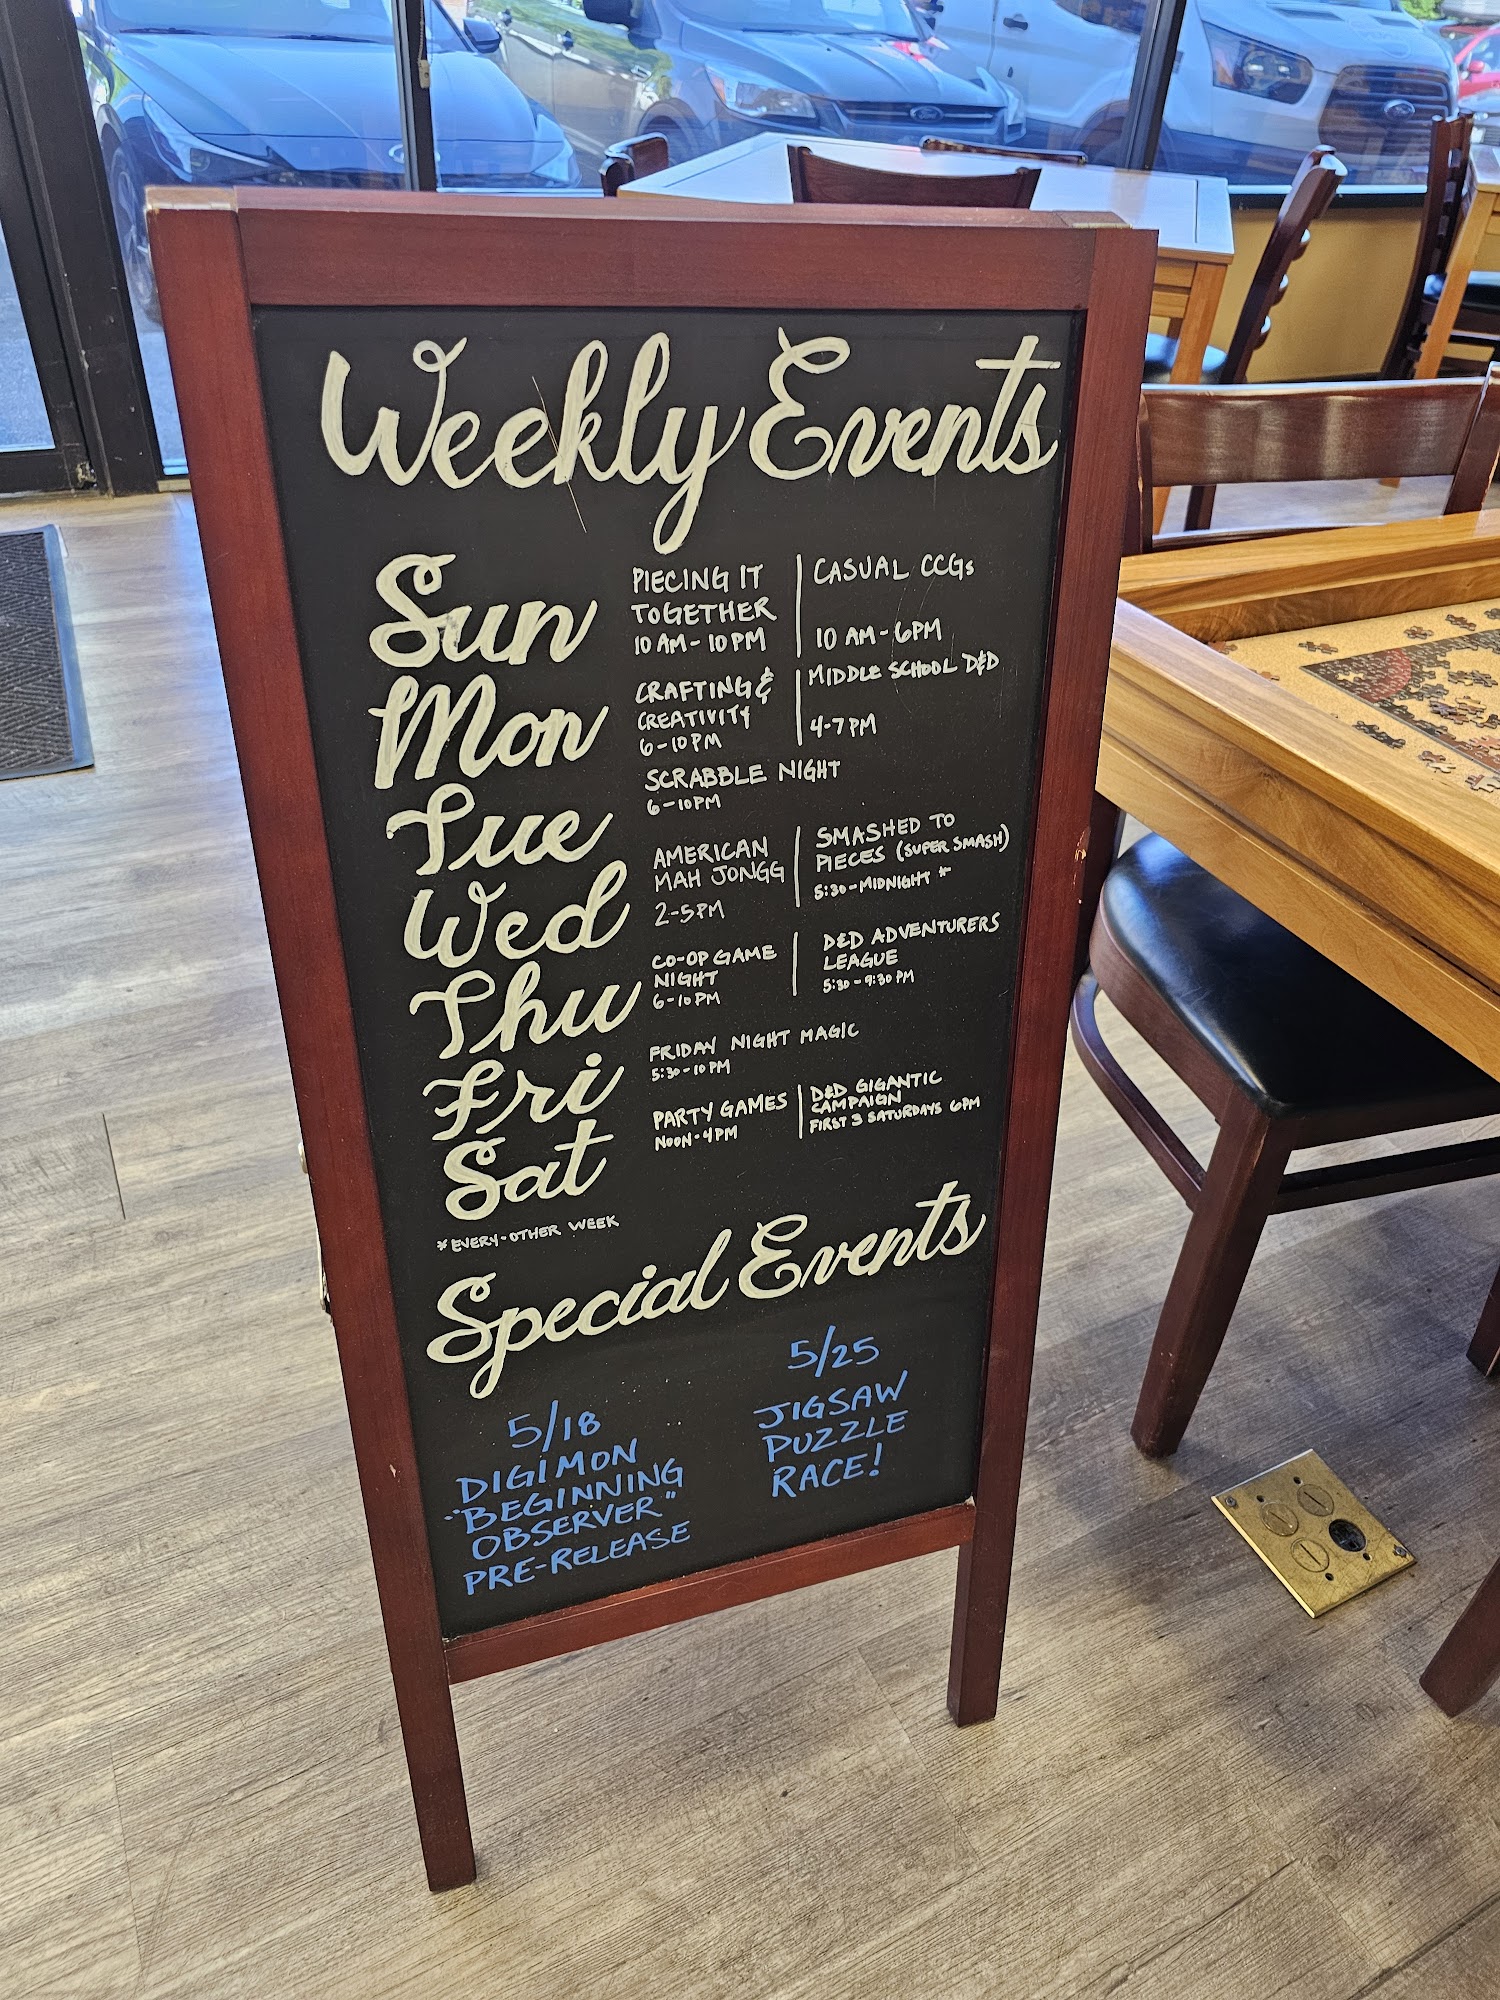 Weekly Events
Sun
PIECING IT
TOGETHER
10 AM - 10 PM
CASUAL CCGs
10 AM - 6PM
Mon
CRAFTING &
CREATIVITY
6-10PM
MIDDLE SCHOOL D&D
4-7PM
Tue
SCRABBLE NIGHT
6-10PM
Wed
AMERICAN
MAH JONGG
2-5PM
SMASHED TO
PIECES (SUPER SMASH)
5:30-MIDNIGHT *
Thu
CO-OP GAME
NIGHT
6-10PM
D&D ADVENTURERS
LEAGUE
5:30-9:30 PM
Fri
FRIDAY NIGHT MAGIC
5:30-10PM
Sat
PARTY GAMES
NOON-4PM
D&D GIGANTIC
CAMPAIGN
FIRST 3 SATURDAYS 6PM
* EVERY-OTHER WEEK
Special Events
5/18
DIGIMON
"BEGINNING
OBSERVER"
PRE-RELEASE
5/25
JIGSAW
PUZZLE
RACE!